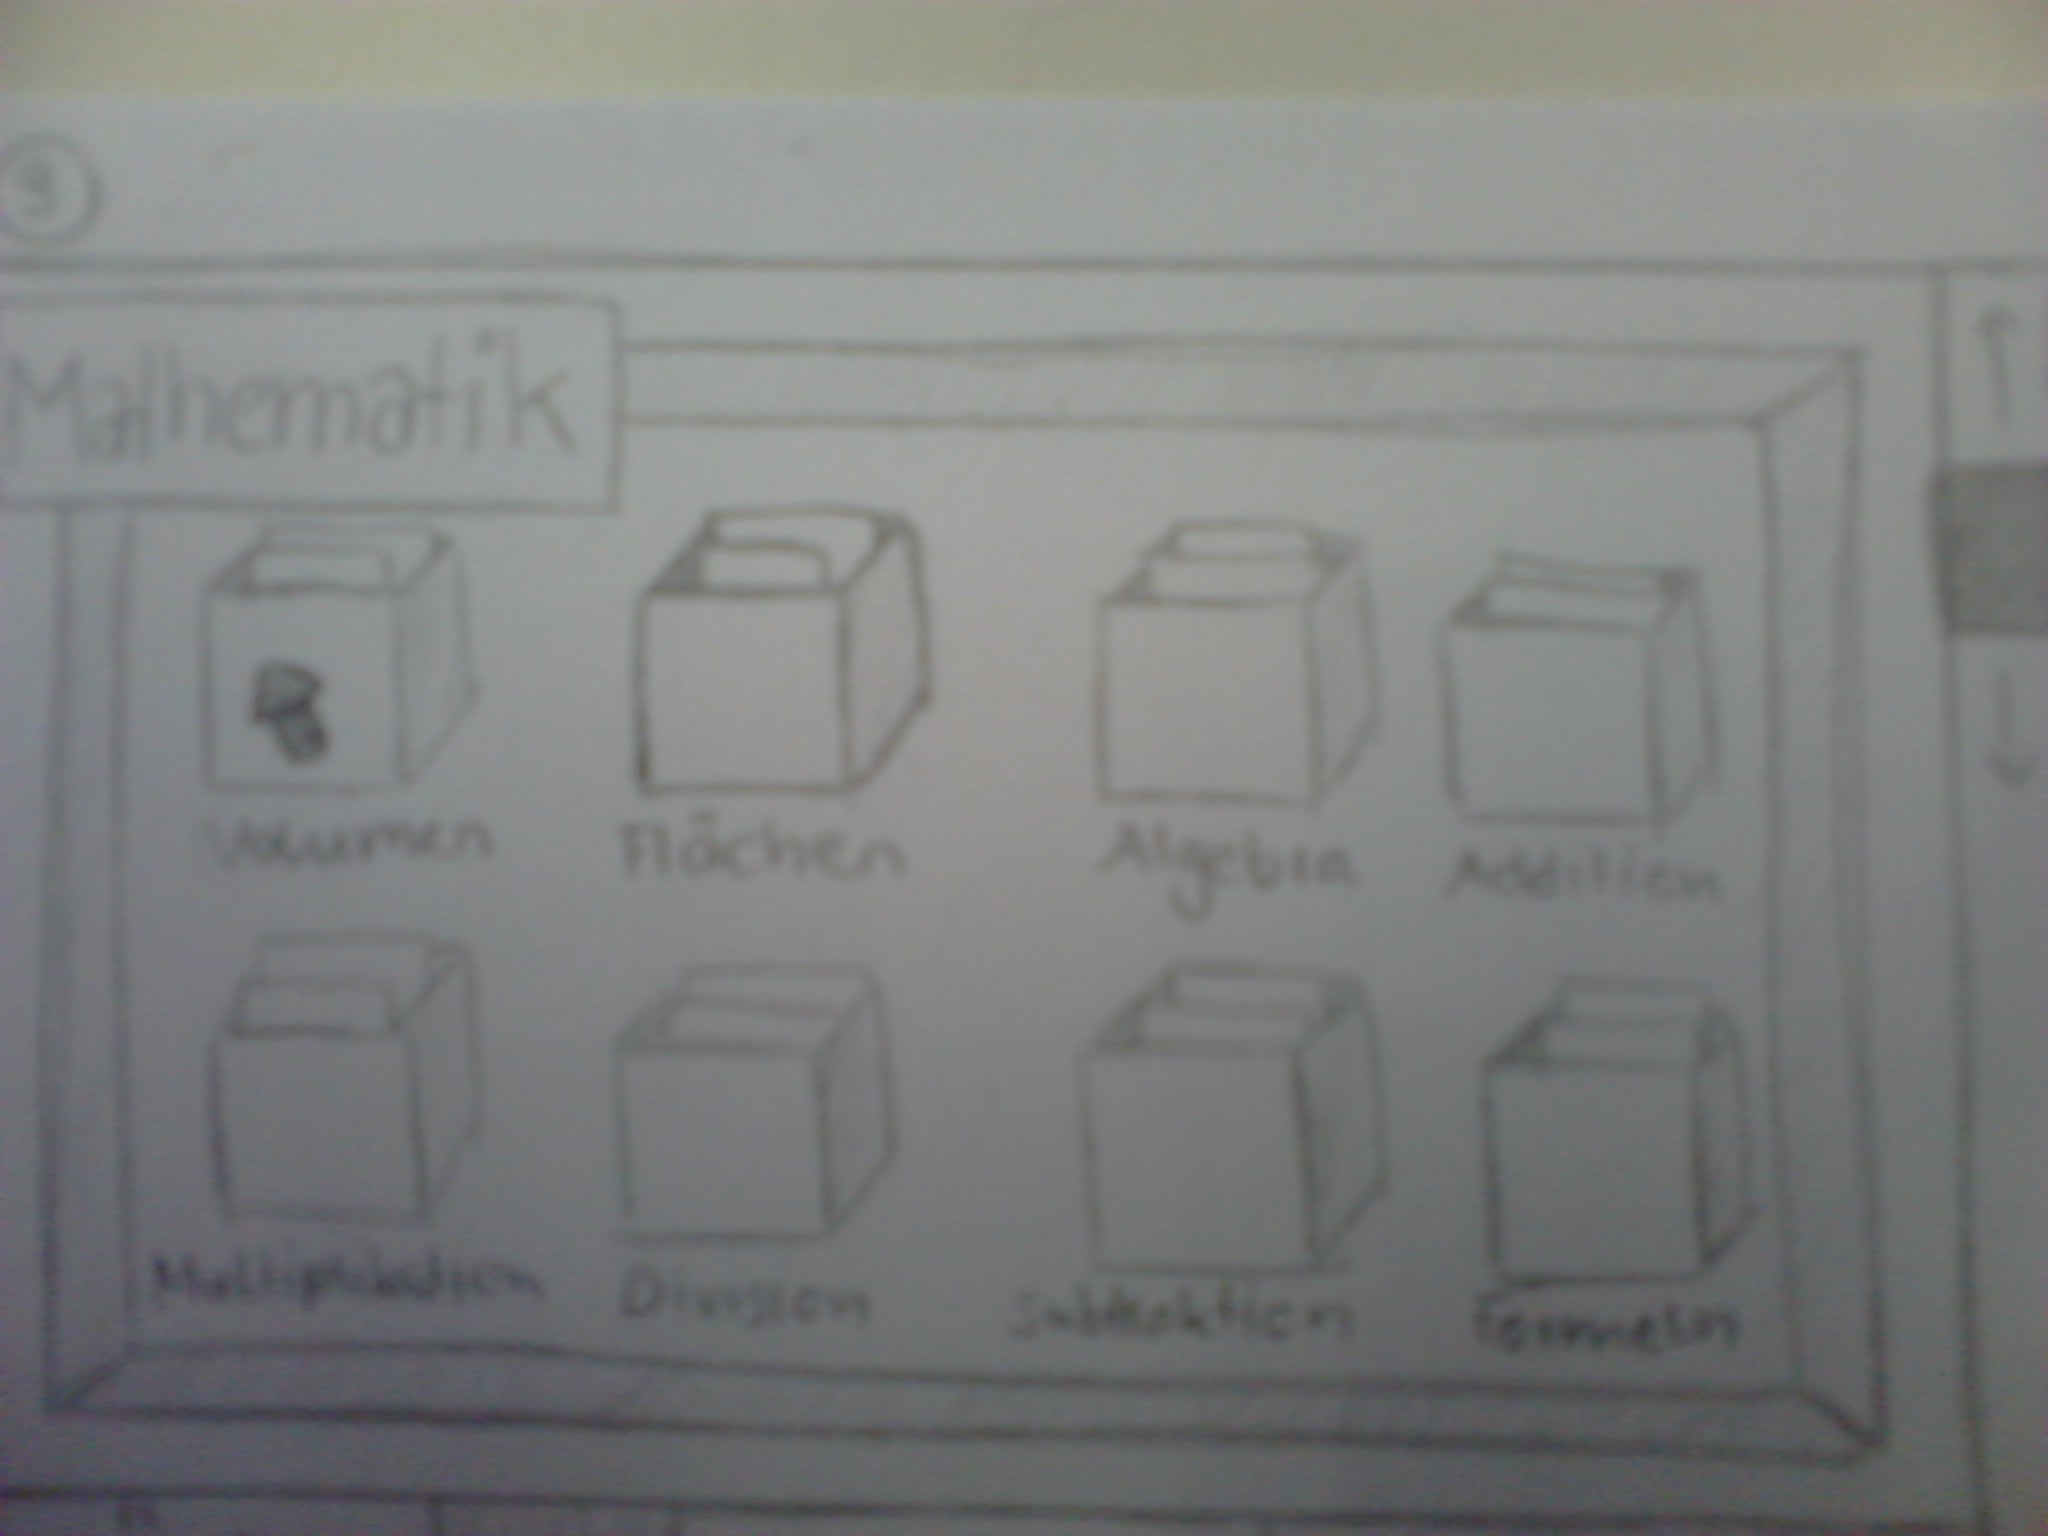 Mathematik
Volumen Flächen Algebra Addition
Multiplikation Division Subtraktion Formeln